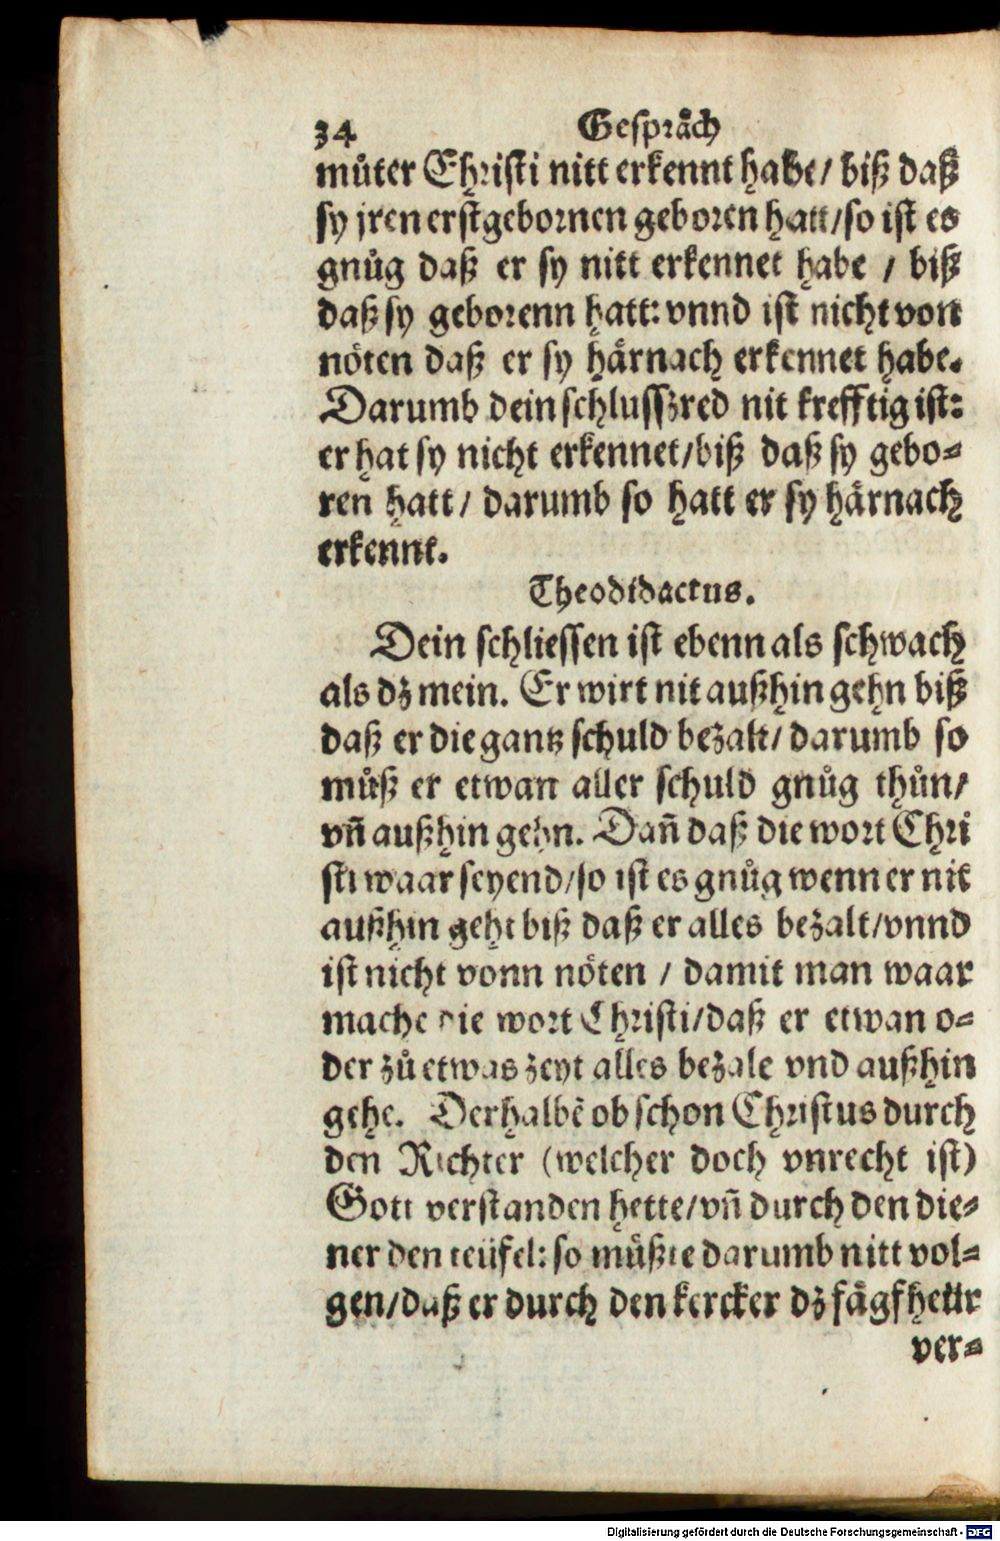 34 Gespraͤch
muͦter Christi nitt erkennt habe/ biß daß
sy jren erstgebornen geboren hatt/so ist es
gnuͦg daß er sy nitt erkennet habe / biß
daß sy geborenn hatt: vnnd ist nicht von
noͤten daß er sy haͤrnach erkennet habe.
Darumb dein schlussʒred nit krefftig ist:
er hat sy nicht erkennet/biß daß sy gebo⸗
ren hatt/ darumb so hatt er sy haͤrnach
erkennt.
Theodidactus.
Dein schliessen ist ebenn als schwach
als dʒ mein. Er wirt nit außhin gehn biß
daß er die gantz schuld bezalt/ darumb so
muͦß er etwan aller schuld gnuͦg thuͦn/
vñ außhin gehn. Dañ daß die wort Chri
sti waar seyend/so ist es gnuͦg wenn er nit
außhin geht biß daß er alles bezalt/vnnd
ist nicht vonn noͤten / damit man waar
mache die wort Christi/daß er etwan o⸗
der zuͦ etwas zeyt alles bezale vnd außhin
gehe. Derhalbẽ ob schon Christus durch
den Richter (welcher doch vnrecht ist)
Gott verstanden hette/vñ durch den die⸗
ner den teüfel: so muͤßte darumb nitt vol⸗
gen/daß er durch den kercker dʒ faͤgfheür
ver⸗
Digitalisierung gefördert durch die Deutsche Forschungsgemeinschaft - DFG